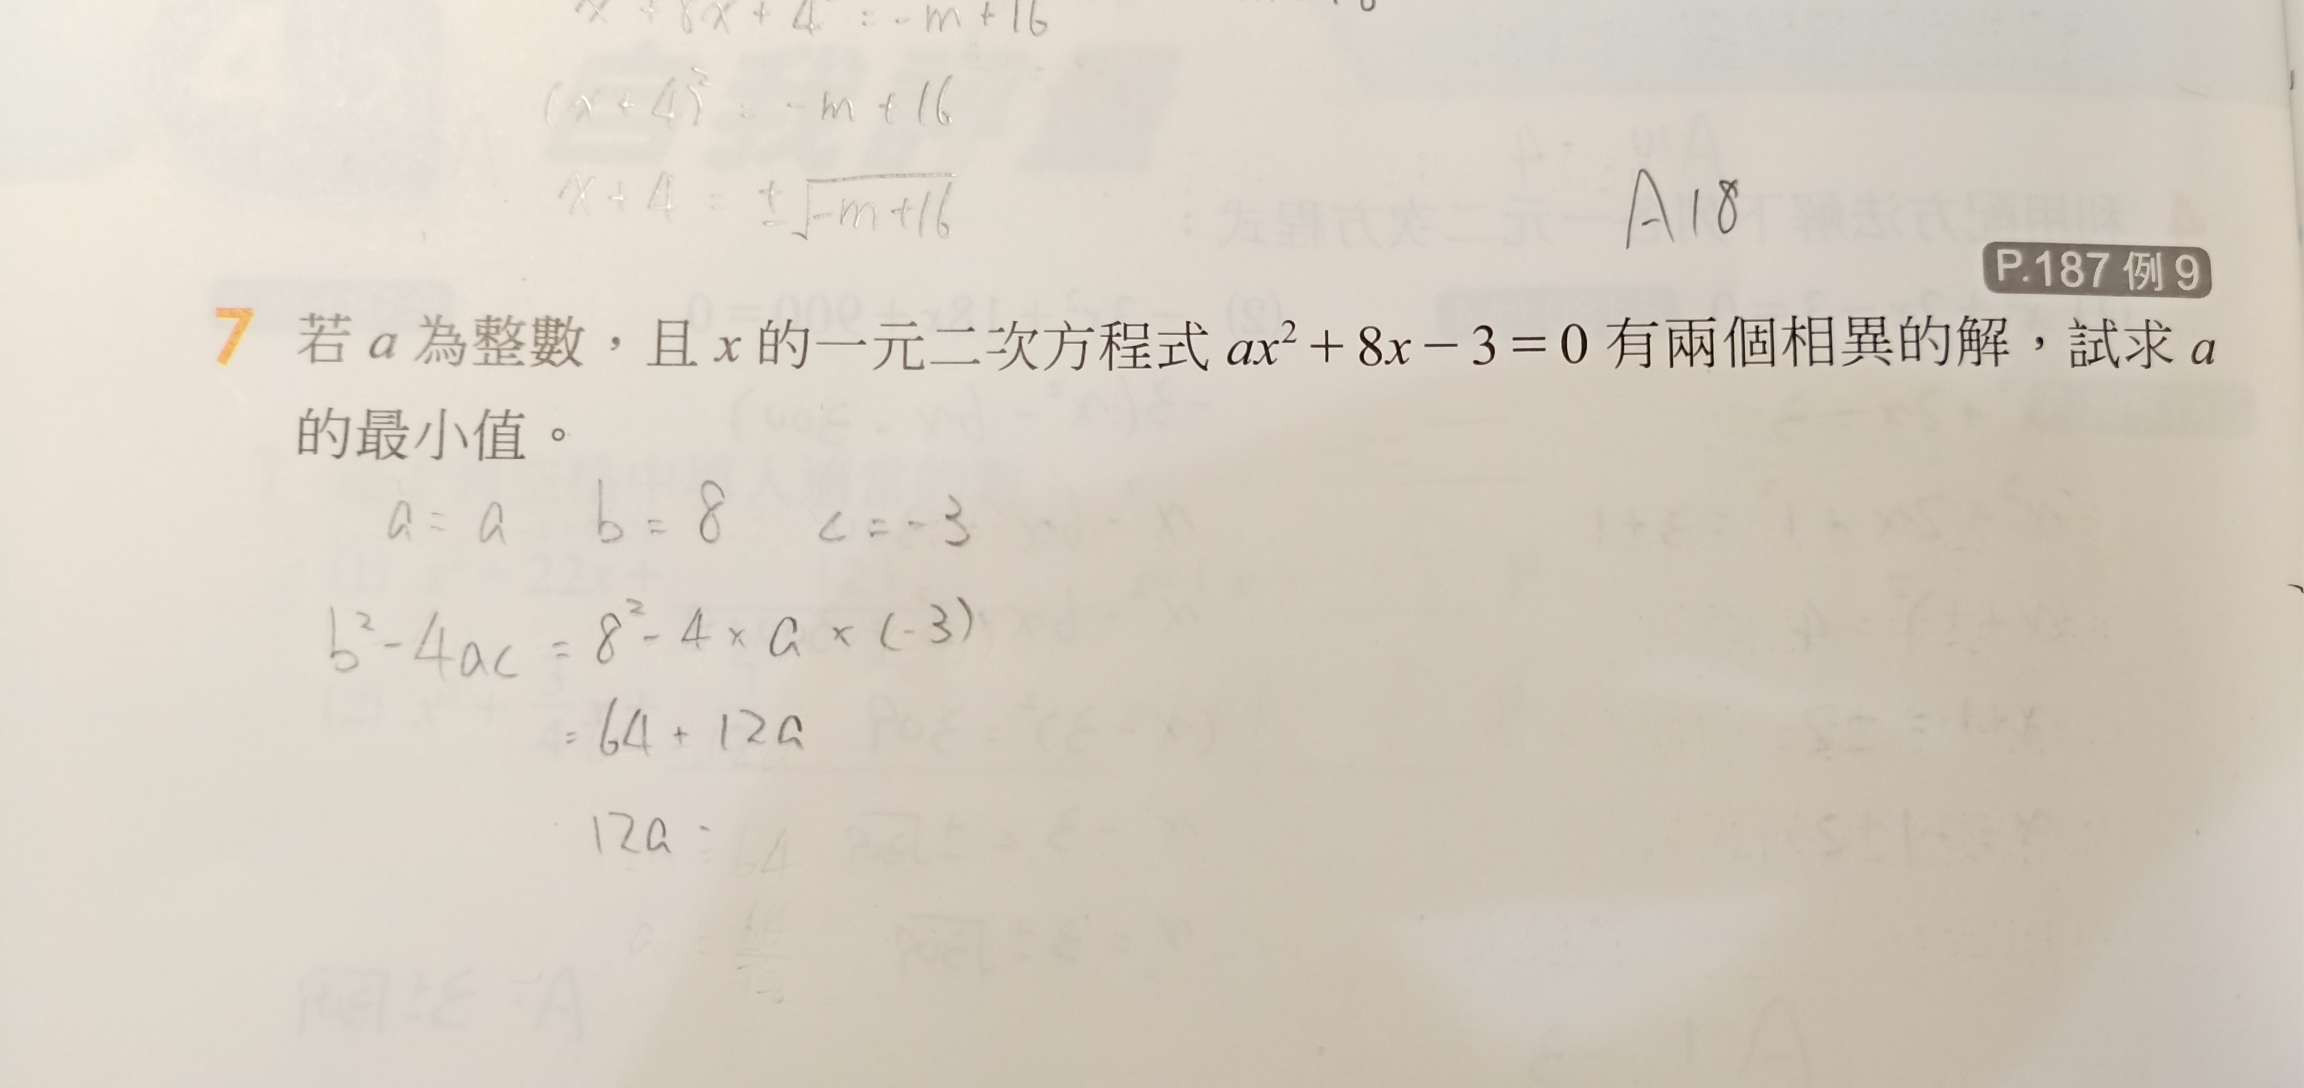 x² + 8x + 4² = -m + 16
(x + 4)² = -m + 16
x + 4 = ±√-m+16
A18
P.187 例 9
7 若 a 為整數，且 x 的一元二次方程式 ax² + 8x − 3 = 0 有兩個相異的解，試求 a
的最小值。
a = a b = 8 c = -3
b² - 4ac = 8² - 4 × a × (-3)
= 64 + 12a
12a =